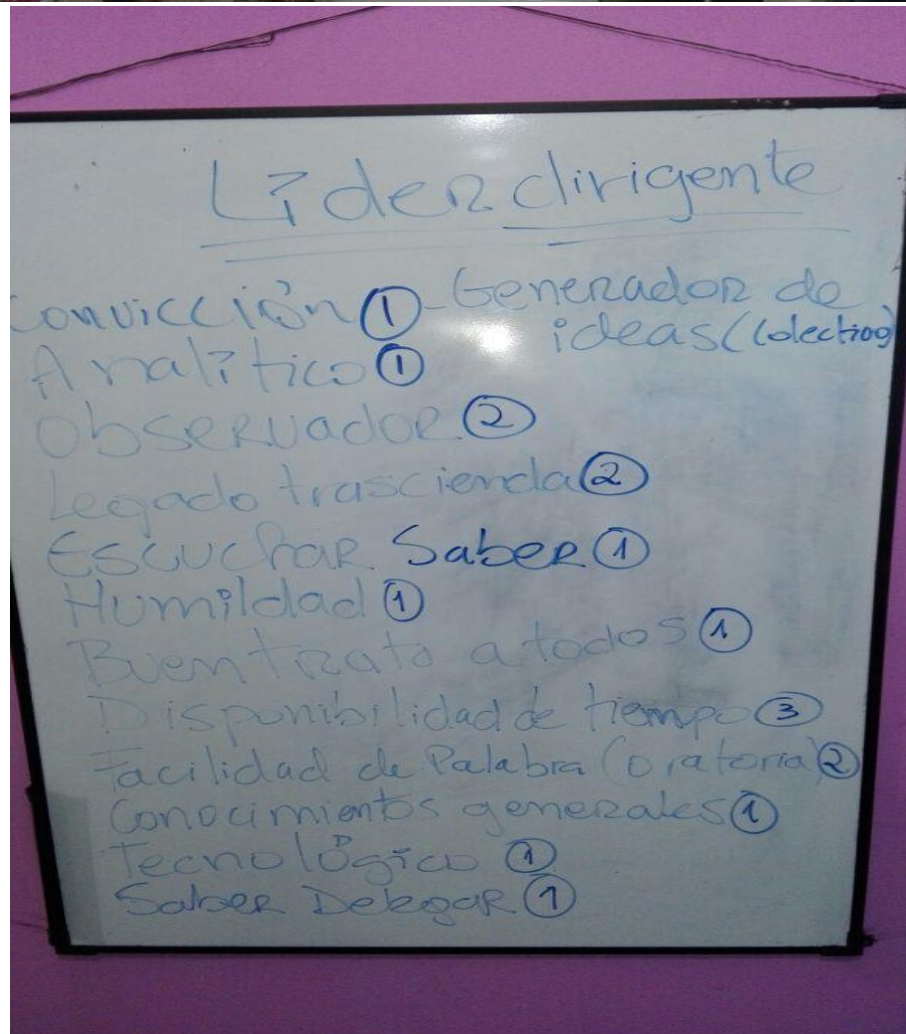 Líder dirigente
Convicción ① - Generador de
ideas (Colectivo)
Analítico ①
Observador ②
Legado trascienda ②
Escuchar Saber ①
Humildad ①
Buen trato a todos ①
Disponibilidad de tiempo ③
Facilidad de Palabra (oratoria) ②
Conocimientos generales ①
Tecnológico ①
Saber Delegar ①